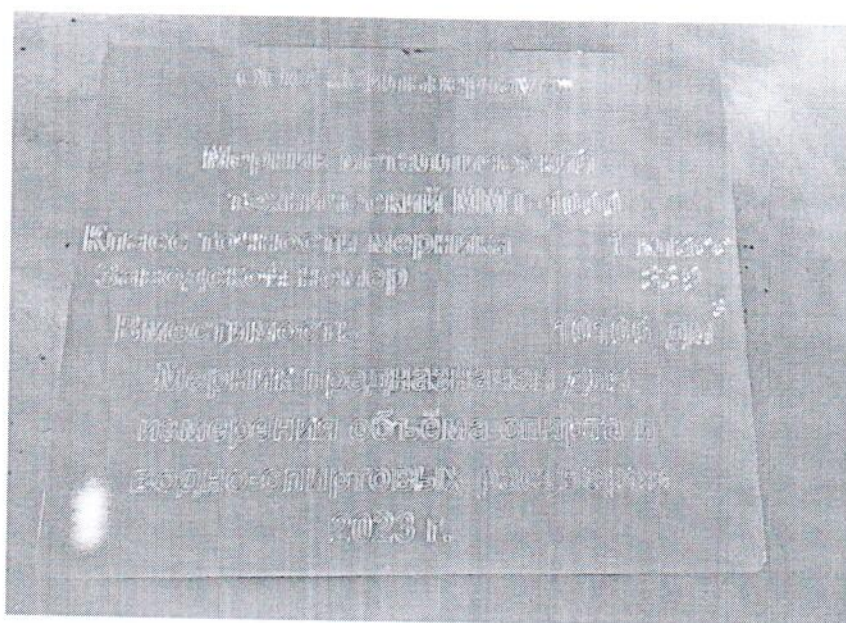 Мерник металлический
технический
Класс точности мерника 1 класс
Заводской номер
Вместимость дм³
Мерник предназначен для
измерения объёма спирта и
водно-спиртовых растворов
2023 г.